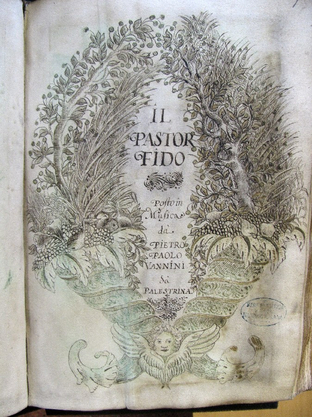 IL
PASTOR
FIDO
Posto in
Musica
da
PIETRO
PAOLO
VANNINI
da
PALESTRINA